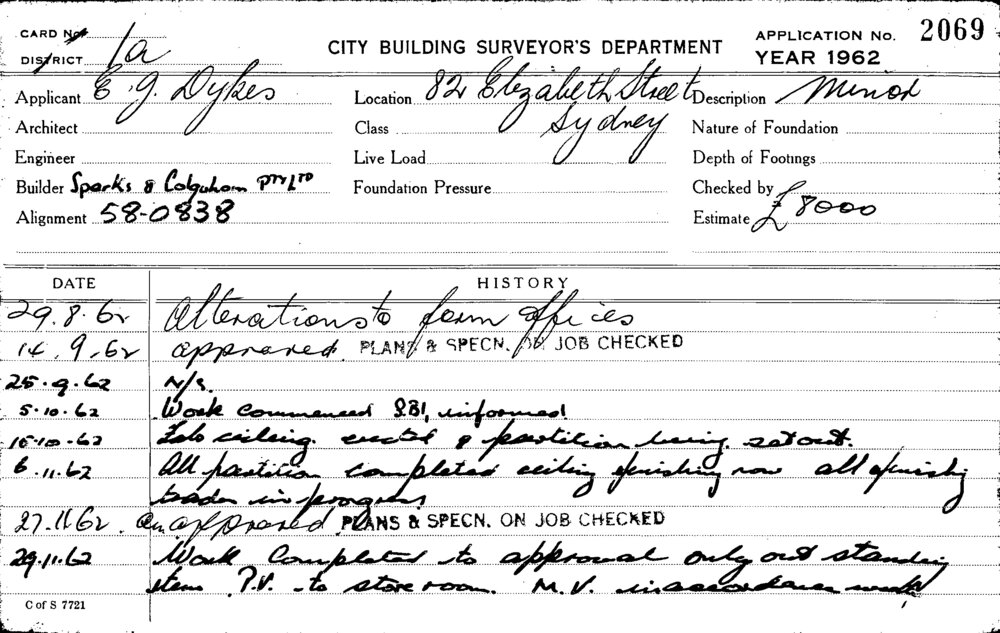 CARD No. 1a
CITY BUILDING SURVEYOR'S DEPARTMENT
APPLICATION No. 2069
DISTRICT
YEAR 1962
Applicant E. G. Dykes Location 82 Elizabeth Street Description Minor
Architect Class Sydney Nature of Foundation
Engineer Live Load Depth of Footings
Builder Sparks & Colquhoun PTY LTD Foundation Pressure Checked by
Alignment 58-0838 Estimate £8000
DATE HISTORY
29.8.62 Alterations to form offices
14.9.62 approved PLANS & SPECN. ON JOB CHECKED
25.9.62 N/S.
5.10.62 Work commenced informed
15.10.62 ceiling erected & partition being set out.
6.11.62 All partition completed ceiling finishing now all finishing
trades in progress
27.11.62 approved PLANS & SPECN. ON JOB CHECKED
29.11.62 Work Completed to approval only out standing
item P.V. to store room. M.V. in accordance
C of S 7721